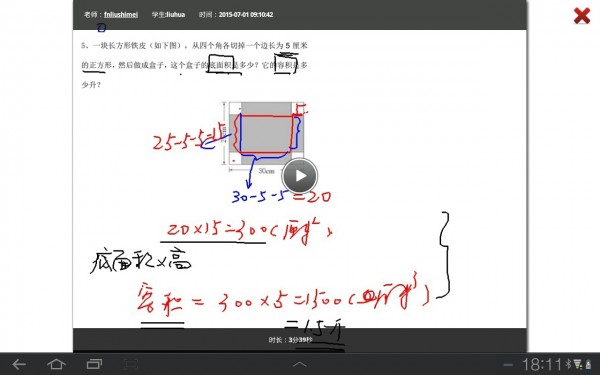 老师：fnliushimei 学生:liuhua 时间：2015-07-01 09:10:42
5、一块长方形铁皮（如下图），从四个角各切掉一个边长为 5 厘米
的正方形，然后做成盒子，这个盒子的底面积是多少？它的容积是多
少升？
5
25-5-5=15
30cm
30-5-5=20
20×15=300(厘米²)
底面积×高
容积 = 300×5=1500(厘米³)
=1.5升
时长：3分39秒
18:11